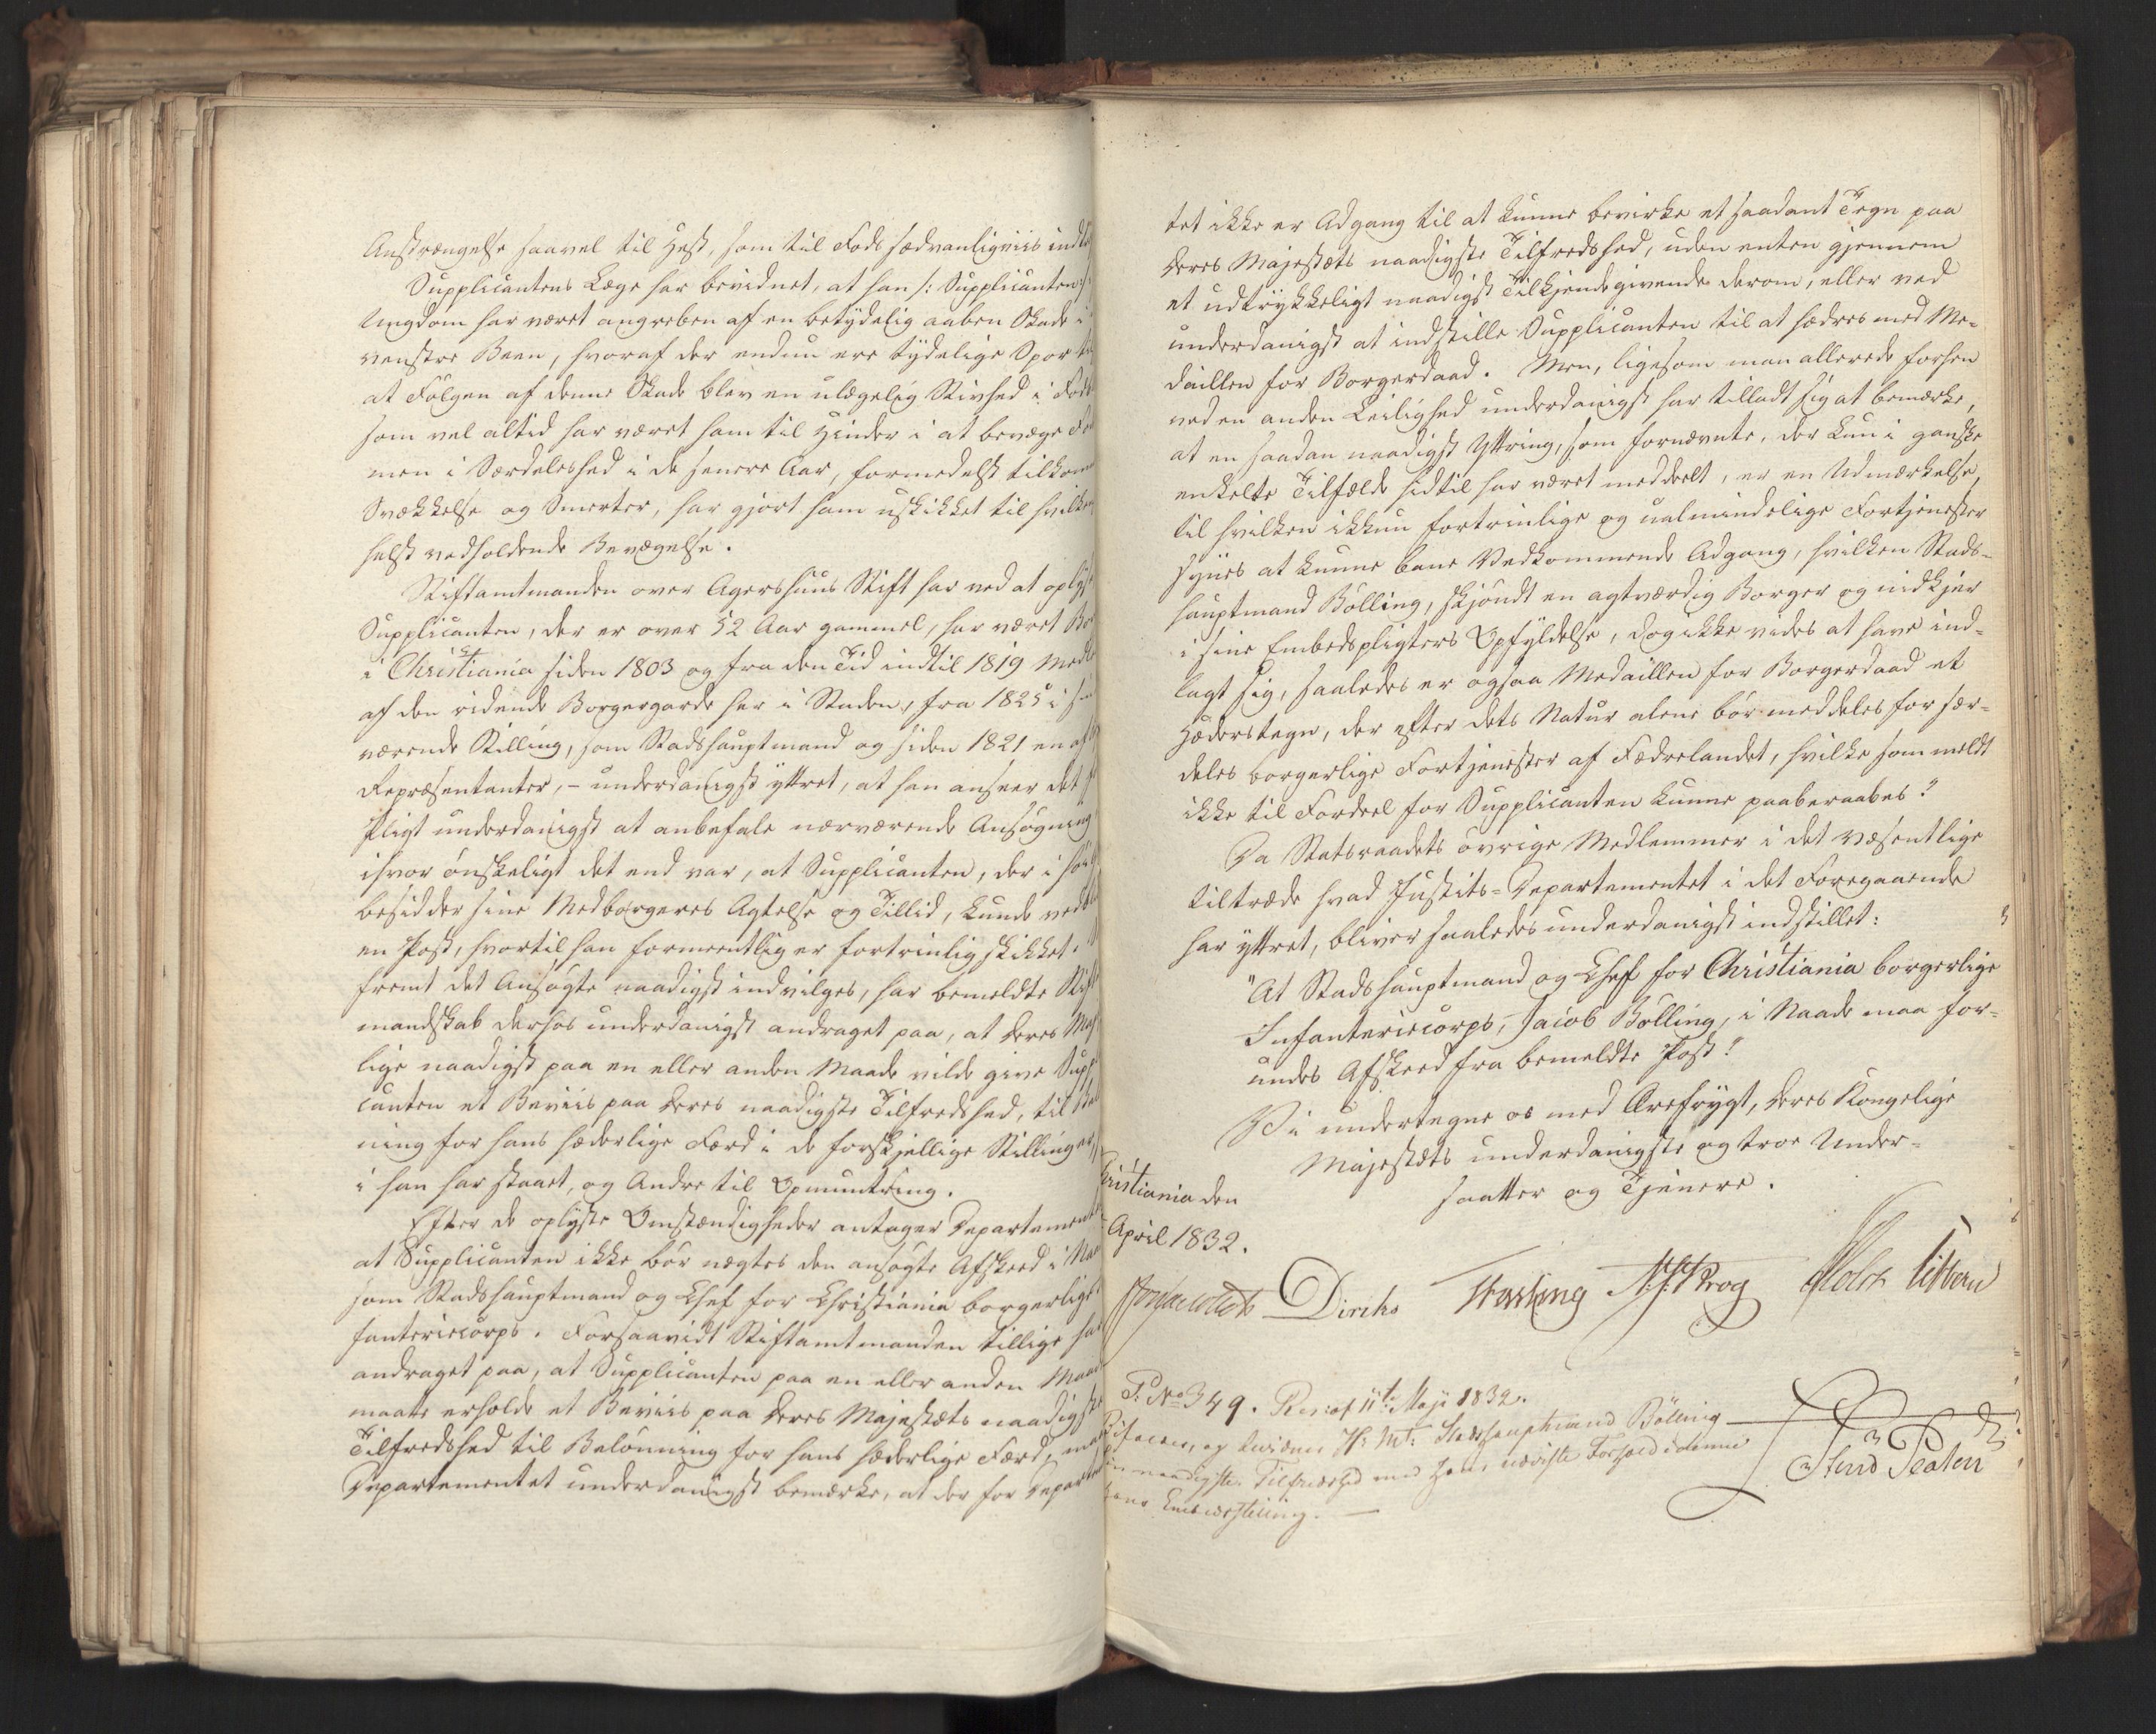 Anstrængelse saavel til Hest, som til Fods sædvanligviis
Supplicantens Læge har bevidnet, at han /: Supplicanten :/
Ungdom har været angreben af en betydelig aaben Skade i
venstre Been, hvoraf der endnu ere tydelige Spor
at Følgen af denne Skade blev en ulægelig Stivhed i
som vel altid har været ham til Hinder i at bevæge
men i Særdeleshed i de senere Aar, formedelst
Svækkelse og Smerter, har gjort ham uskikket til
helst vedholdende Bevægelse.
Stiftamtmanden over Agershuus Stift har ved at
Supplicanten, der er over 52 Aar gammel, har været
i Christiania siden 1803 og fra den Tid indtil 1819
af den ridende Borgergarde her i Staden, fra 1825 i
værende Stilling, som Stadshauptmand og siden 1821 en af
Repræsentanter, - underdanigst yttret, at han anseer det
Pligt underdanigst at anbefale nærværende Ansøgning
ihvor ønskeligt det end var, at Supplicanten, der i
besidder sine Medborgeres Agtelse og Tillid, kunde
en Post, hvortil han formeentlig er fortrinlig skikket.
fremt det Ansøgte naadigst indvilges, har bemeldte
mandskab derhos underdanigst andraget paa, at Deres
lige naadigst paa en eller anden Maade vilde give
canten et Beviis paa Deres naadigste Tilfredshed, til
ning for hans hæderlige Færd i de forskjellige Stillinger,
i han har staaet, og Andre til Opmuntring.
Efter de oplyste Omstændigheder antager
at Supplicanten ikke bør nægtes den ansøgte Afskeed i
som Stadshauptmand og Chef for Christiania borgerlige
fanteriecorps. Forsaavidt Stiftamtmanden tillige
andraget paa, at Supplicanten paa en eller anden
maatte erholde et Beviis paa Deres Majestæts naadigste
Tilfredshed til Belønning for hans hæderlige Færd,
Departementet underdanigst bemærke, at der for
tet ikke er Adgang til at kunne bevirke et saadant Tegn paa
Deres Majestæts naadigste Tilfredshed, uden enten gjennem
et udtrykkeligt naadigst Tilkjendegivende derom, eller ved
underdanigst at indstille Supplicanten til at hædres med Me-
daillen for Borgerdaad. Men, ligesom man allerede forhen
ved en anden Leilighed underdanigst har tilladt sig at bemærke,
at en saadan naadigst Yttring, som fornævnte, der kun i ganske
enkelte Tilfælde hidtil har været meddeelt, er en Udmærkelse,
til hvilken ikkun fortrinlige og ualmindelige Fortjenester
synes at kunne bane Vedkommende Adgang, hvilken Stads-
hauptmand Bölling, skjøndt en agtværdig Borger og nidkjær
i sine Embedspligters Opfyldelse, dog ikke vides at have ind-
lagt sig, saaledes er ogsaa Medaillen for Borgerdaad et
Hæderstegn, der efter dets Natur alene bør meddeles for sær-
deles borgerlige Fortjenester af Fædrelandet, hvilke som meldt
ikke til Fordeel for Supplicanten kunne paaberaabes."
Da Statsraadets øvrige Medlemmer i det væsentlige
tiltræde hvad Justits-Departementet i det Foregaaende
har yttret, bliver saaledes underdanigst indstillet:
"At Stadshauptmand og Chef for Christiania borgerlige
Infanteriecorps, Jacob Bölling, i Naade maa for-
undes Afskeed fra bemeldte Post."
Vi undertegne os med Ærefrygt, Deres Kongelige
Majestæts underdanigste og troe Under-
saatter og Tjenere.
Christiania den
April 1832.
Diriks Krog Holst Vibe
P. No 349. Res: af 11te Maji 1832.
Bifaldes, og bevidner H: Mt: Stadshauptmand Bölling
sin naadigste Tilfredshed med hans udviste Forhold i denne
hans Embedsstilling.